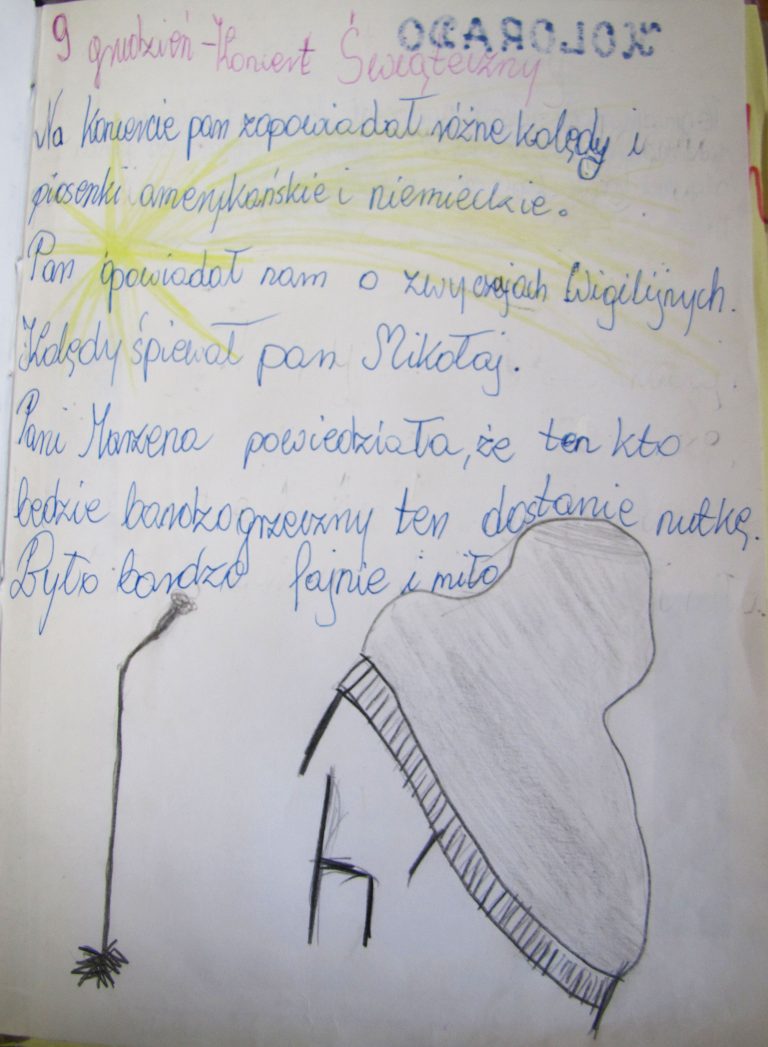 KOLORADO
9 grudzień - Koncert Świąteczny
Na koncercie pan zapowiadał różne kolędy i
piosenki amerykańskie i niemieckie.
Pan opowiadał nam o zwyczajach Wigilijnych.
Kolędy śpiewał pan Mikołaj.
Pani Marzena powiedziała, że ten kto
będzie bardzo grzeczny ten dostanie nutkę.
Było bardzo fajnie i miło